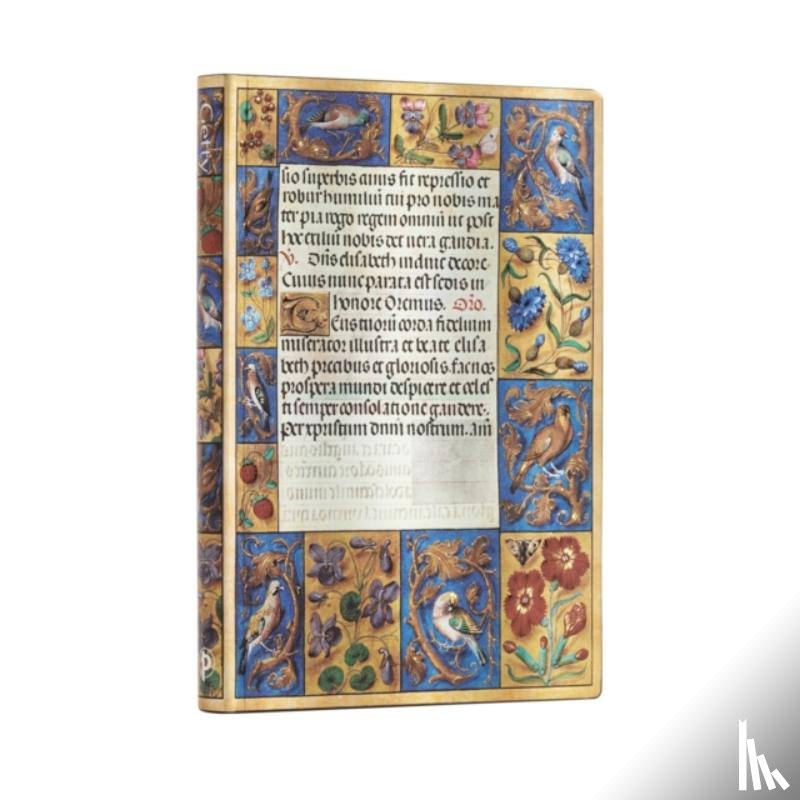 Getty
sio superbis auus fit repressio et
robur humiliū tui pro nobis ma
ter pia rogo regem omniū ut post
hoc exiliū nobis det uera gaudia.
V. Dn̄s elisabeth induit decore
Cuius nunc parata est sedis in
honore Oremus. Oro.
Deus tuorū corda fidelium
miserator illustra et beate elisa
beth precibus et gloriosis. fac nos
prospera mundi despicere et celes
ti semper consolatione gaudere.
Per xpistum dnm nostrum. am